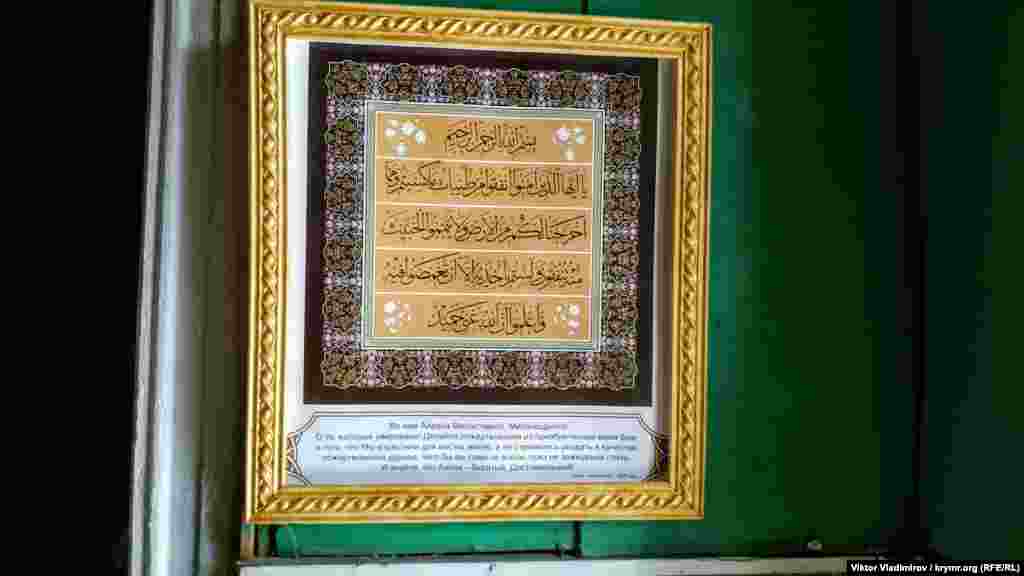 بسم الله الرحمن الرحيم
يا أيها الذين آمنوا أنفقوا من طيبات ما كسبتم ومما
أخرجنا لكم من الأرض ولا تيمموا الخبيث
منه تنفقون ولستم بآخذيه إلا أن تغمضوا فيه
واعلموا أن الله غني حميد
Во имя Аллаха Милостивого, Милосердного!
О те, которые уверовали! Делайте пожертвования из приобретённых вами благ
и того, что Мы взрастили для вас на земле, и не стремитесь раздать в качестве
пожертвования дурное, чего бы вы сами не взяли, пока не зажмурили глаза.
И знайте, что Аллах – Богатый, Достохвальный!
Viktor Vladimirov / krymr.org (RFE/RL)